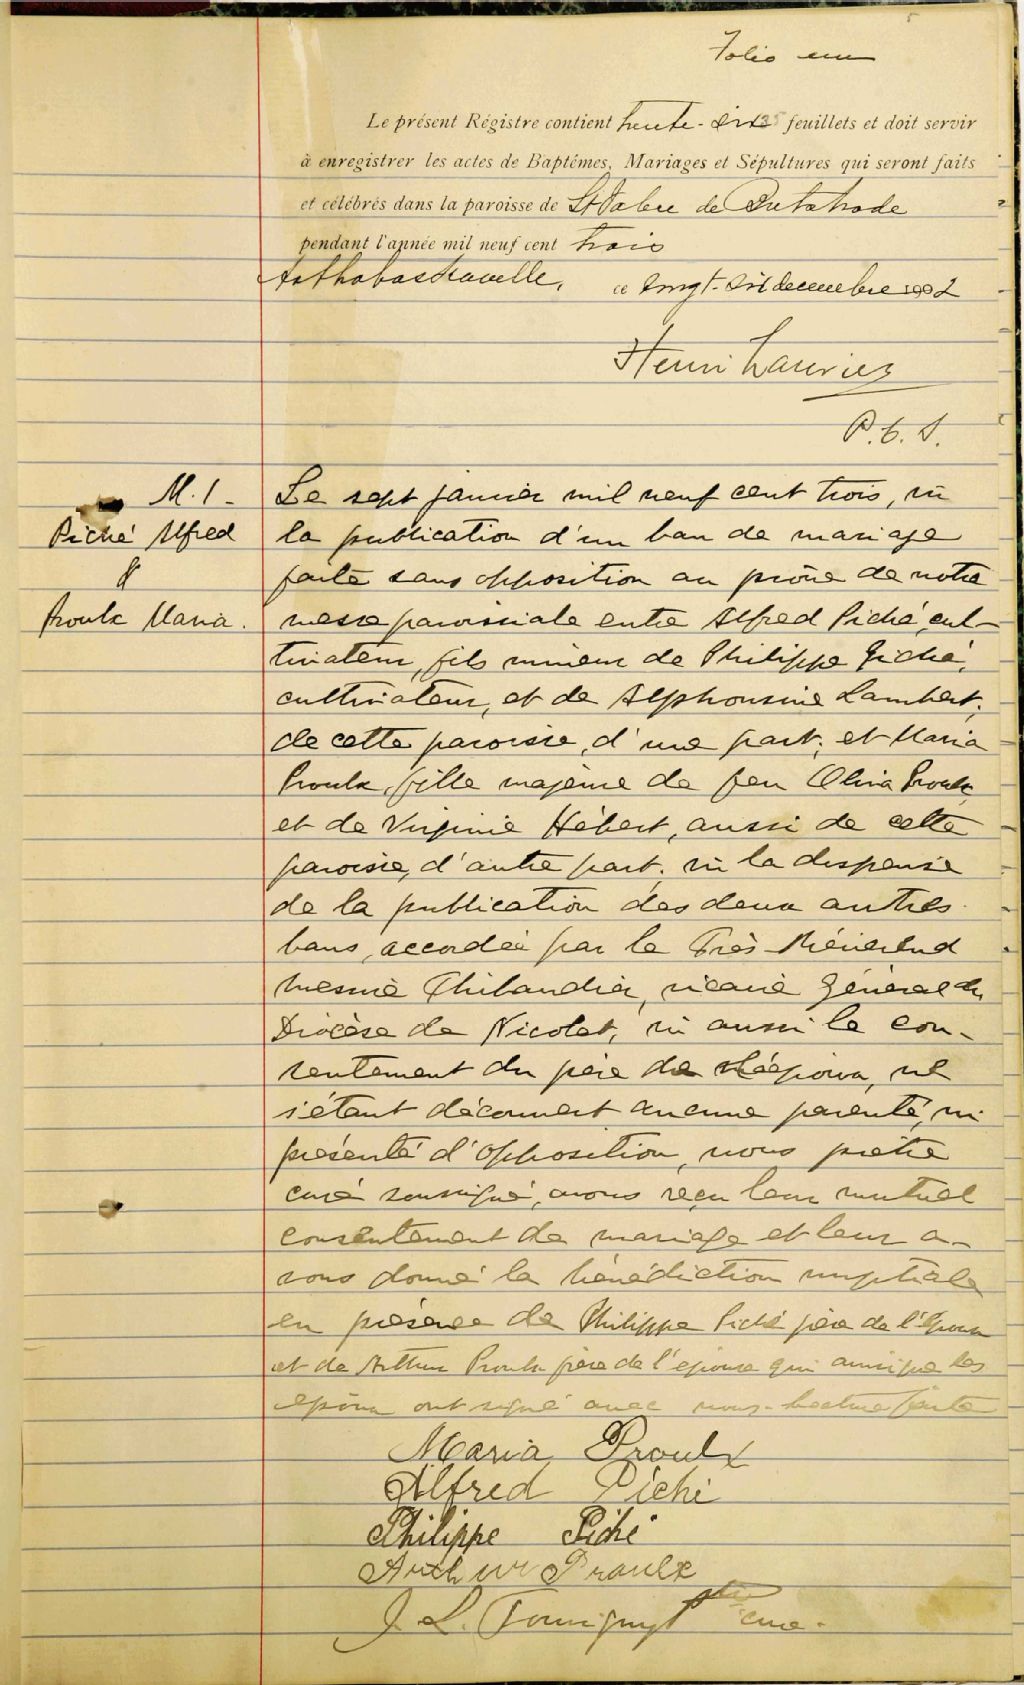 Folio un
Le présent Régistre contient trente-six feuillets et doit servir
à enregistrer les actes de Baptêmes, Mariages et Sépultures qui seront faits
et célébrés dans la paroisse de St Valere de Bulstrode
pendant l'année mil neuf cent trois
Arthabaskaville, ce vingt-six decembre 1902
Henri Laurier
P. C. S.
M. 1 -
Piché Alfred
&
Proulx Maria.
Le sept janvier mil neuf cent trois, vu
la publication d'un ban de mariage
faite sans opposition au prône de notre
messe paroissiale entre Alfred Piché, cul-
tivateur, fils mineur de Philippe Piché,
cultivateur, et de Alphonsine Lambert,
de cette paroisse, d'une part; et Maria
Proulx, fille majeure de feu Oliva Proulx
et de Virginie Hébert, aussi de cette
paroisse, d'autre part; vu la dispense
de la publication des deux autres
bans, accordée par le Très-Révérend
messire Thibaudier, vicaire Général du
Diocèse de Nicolet, vu aussi le con-
sentement du père de l'époux, ne
s'étant découvert aucune parenté, ni
présenté d'opposition, nous prêtre
curé soussigné, avons reçu leur mutuel
consentement de mariage et leur a-
vons donné la bénédiction nuptiale
en présence de Philippe Piché père de l'époux
et de Arthur Proulx frère de l'épouse qui ainsi que les
époux ont signé avec nous. Lecture faite
Maria Proulx
Alfred Piché
Philippe Piché
Arthur Proulx
J. L. Tourigny Ptre curé.